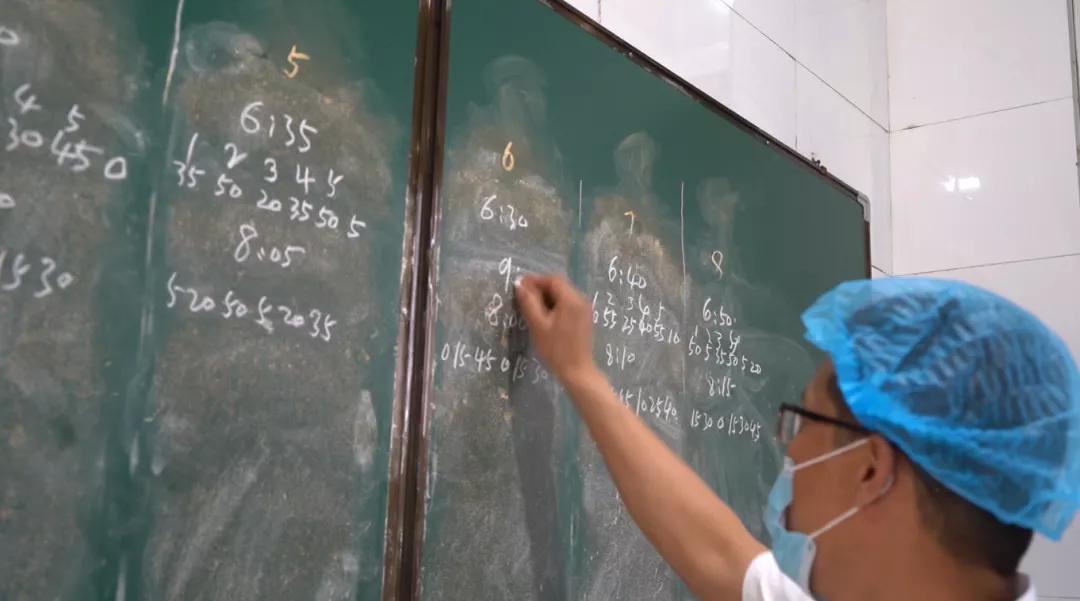 4 5
30 45 0
15 30
5
6:35
1 2 3 4 5
35 50 20 35 50 5
8:05
5 20 50 5 20 35
6
6:30
9:
8:00
0 15 45 0 15 30
7
6:40
2 3 4 5
55 25 40 55 10
8:10
10 25 40
8
6:50
1 2 3 4
50 5 35 50 5 20
8:15
15 30 0 15 30 45